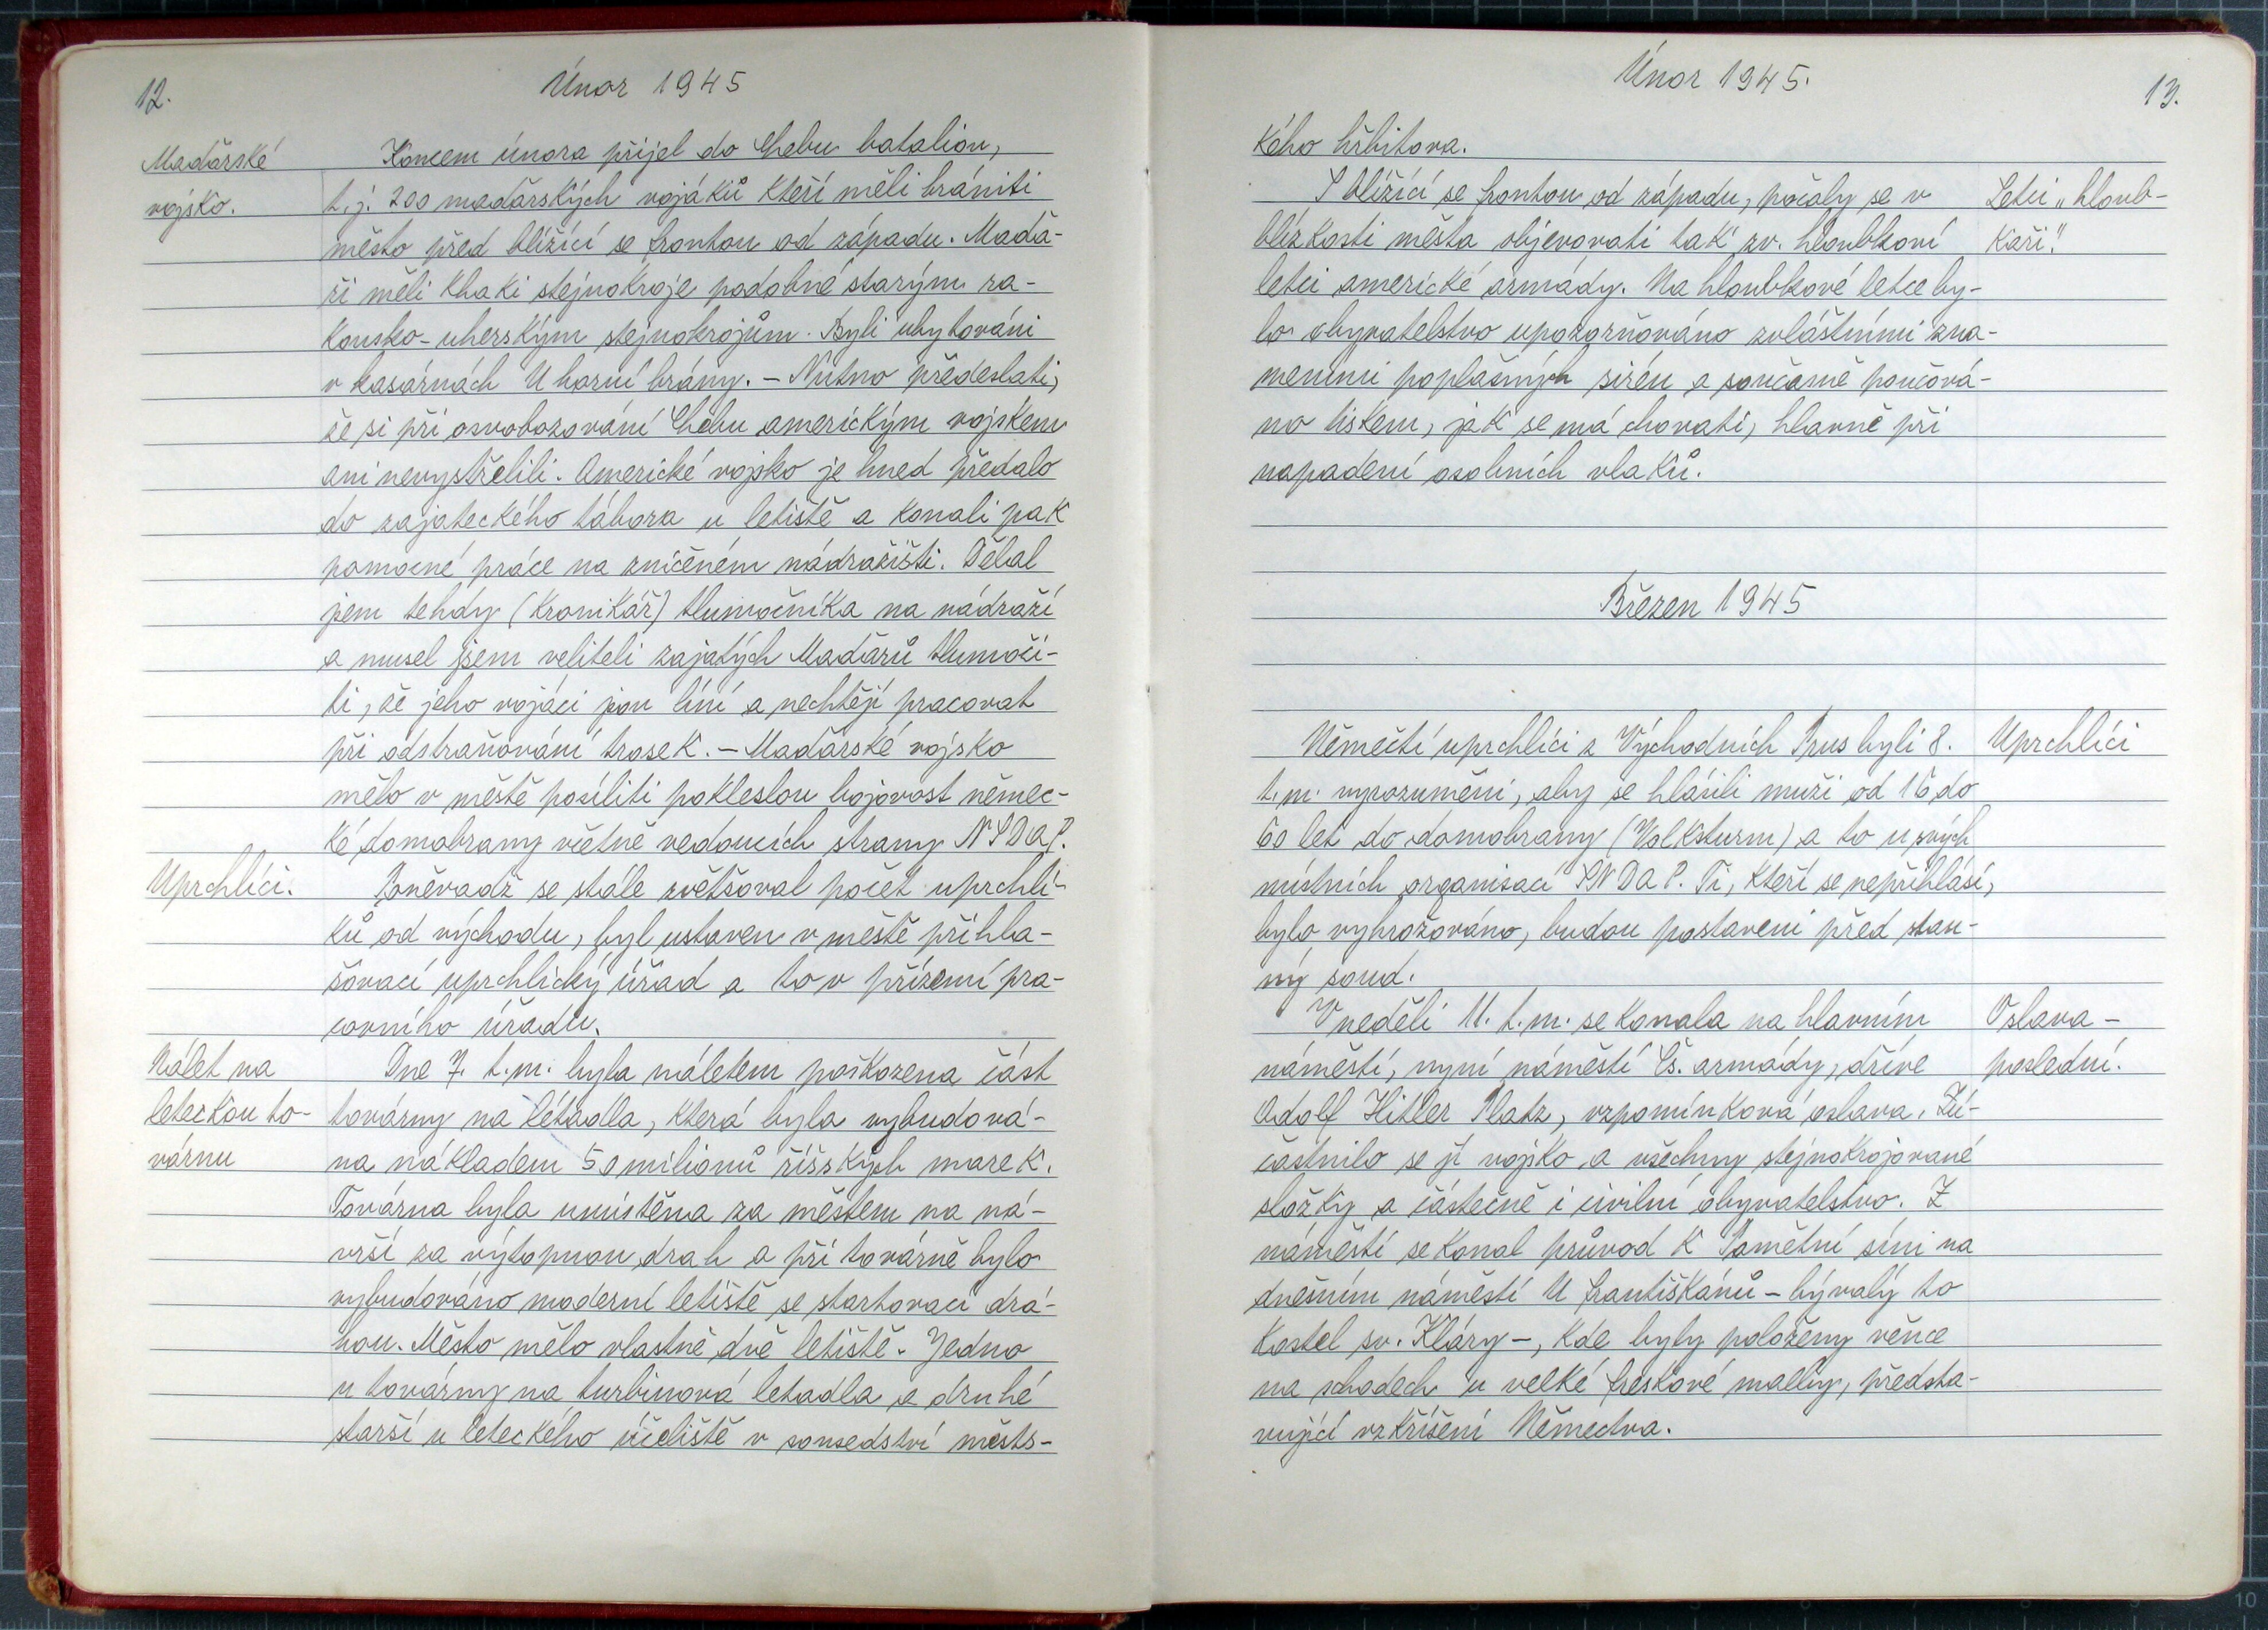 12.
Únor 1945
Maďarské
vojsko.
Koncem února přijel do Chebu batalion,
t.j. 200 maďarských vojáků kteří měli brániti
město před blížící se frontou od západu. Maďa-
ři měli khaki stejnokroje podobné starým ra-
kousko-uherským stejnokrojům. Byli ubytováni
v kasárnách U horní brány. - Nutno předeslati,
že si při osvobozování Chebu americkým vojskem
ani nevystřelili. Americké vojsko je hned předalo
do zajateckého tábora u letiště a konali pak
pomocné práce na zničeném nádražišti. Dělal
jsem tehdy (kronikář) tlumočníka na nádraží
a musel jsem veliteli zajatých Maďarů tlumoči-
ti, že jeho vojáci jsou líní a nechtějí pracovat
při odstraňování trosek. - Maďarské vojsko
mělo v městě posíliti pokleslou bojovost němec-
ké domobrany včetně vedoucích strany NSDAP.
Uprchlíci.
Poněvadž se stále zvětšoval počet uprchlí-
ků od východu, byl ustaven v městě přihla-
šovací uprchlický úřad a to v přízemí pra-
covního úřadu.
Nálet na
leteckou to-
várnu
Dne 7. t.m. byla náletem poškozena část
továrny na létadla, která byla vybudová-
na nákladem 50 milionů říšských marek.
Továrna byla umístěna za městem na ná-
vrší za výtopnou drah a při továrně bylo
vybudováno moderní letiště se startovací drá-
hou. Město mělo vlastně dvě letiště. Jedno
u továrny na turbinová letadla a druhé
starší u leteckého učeliště v sousedství městs-
Únor 1945.
13.
kého hřbitova.
S blížící se frontou od západu, počaly se v
blízkosti města objevovati tak zv. hloubkoví
letci americké armády. Na hloubkové letce by-
lo obyvatelstvo upozorňováno zvláštními zna-
meními poplašných sirén a současně poučová-
no tiskem, jak se má chovati, hlavně při
napadení osobních vlaků.
Letci „hloub-
kaři".
Březen 1945
Němečtí uprchlíci z Východních Prus byli 8.
t.m. vyrozuměni, aby se hlásili muži od 16 do
60 let do domobrany (Volksturm) a to u svých
místních organisací SNDAP. Ti, kteří se nepřihlásí,
bylo vyhrožováno, budou postaveni před stan-
ný soud.
Uprchlíci
V neděli 11. t.m. se konala na hlavním
náměstí, nyní náměstí Čs. armády, dříve
Adolf Hitler Platz, vzpomínková oslava. Zú-
častnilo se jí vojsko a všechny stejnokrojované
složky a částečně i civilní obyvatelstvo. Z
náměstí se konal průvod k Pamětní síni na
dnešním náměstí U františkánů - bývalý to
kostel sv. Kláry -, kde byly položeny věnce
na schodech u velké freskové malby, předsta-
vující vzkříšení Německa.
Oslava -
poslední.
10